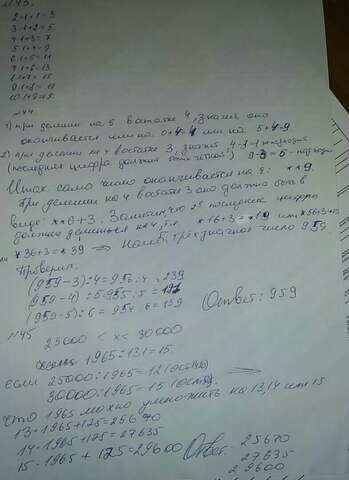 N43.
2-1+1=3
3-1+2=5
4-1+3=7
5-1+4=9
6-1+5=11
N44.
1) При делении на 5 в остатке 4, значит оно
оканчивается или на 0+4=4 или на 5+4=9
2) при делении на 4 в остатке 3, значит 4-3=1
(последняя цифра должна быть чётной) 9-3=6 -
Итак само число оканчивается на 9: **9.
При делении на 4 в остатке 3 оно должно быть в
виде: **6+3. Заметим, что 2 последние цифры
должна делиться на 4, т.е. *16+3=*19 или *56+3=*59
или *36+3=*39 => Наиб. трёхзначное число 959
Проверим:
(959-3):4=956:4=239
(959-4):5=955:5=191
(959-5):6=954:6=159
Ответ: 959
N45
25000 < x < 30000
1965:131=15
если 25000:1965=12 (ост
30000:1965=15 (ост
что 1965 можно умножить на 13, 14 или 15
13·1965+125=25670
14·1965+125=27635
15·1965+125=29600
Ответ: 25670
27635
29600